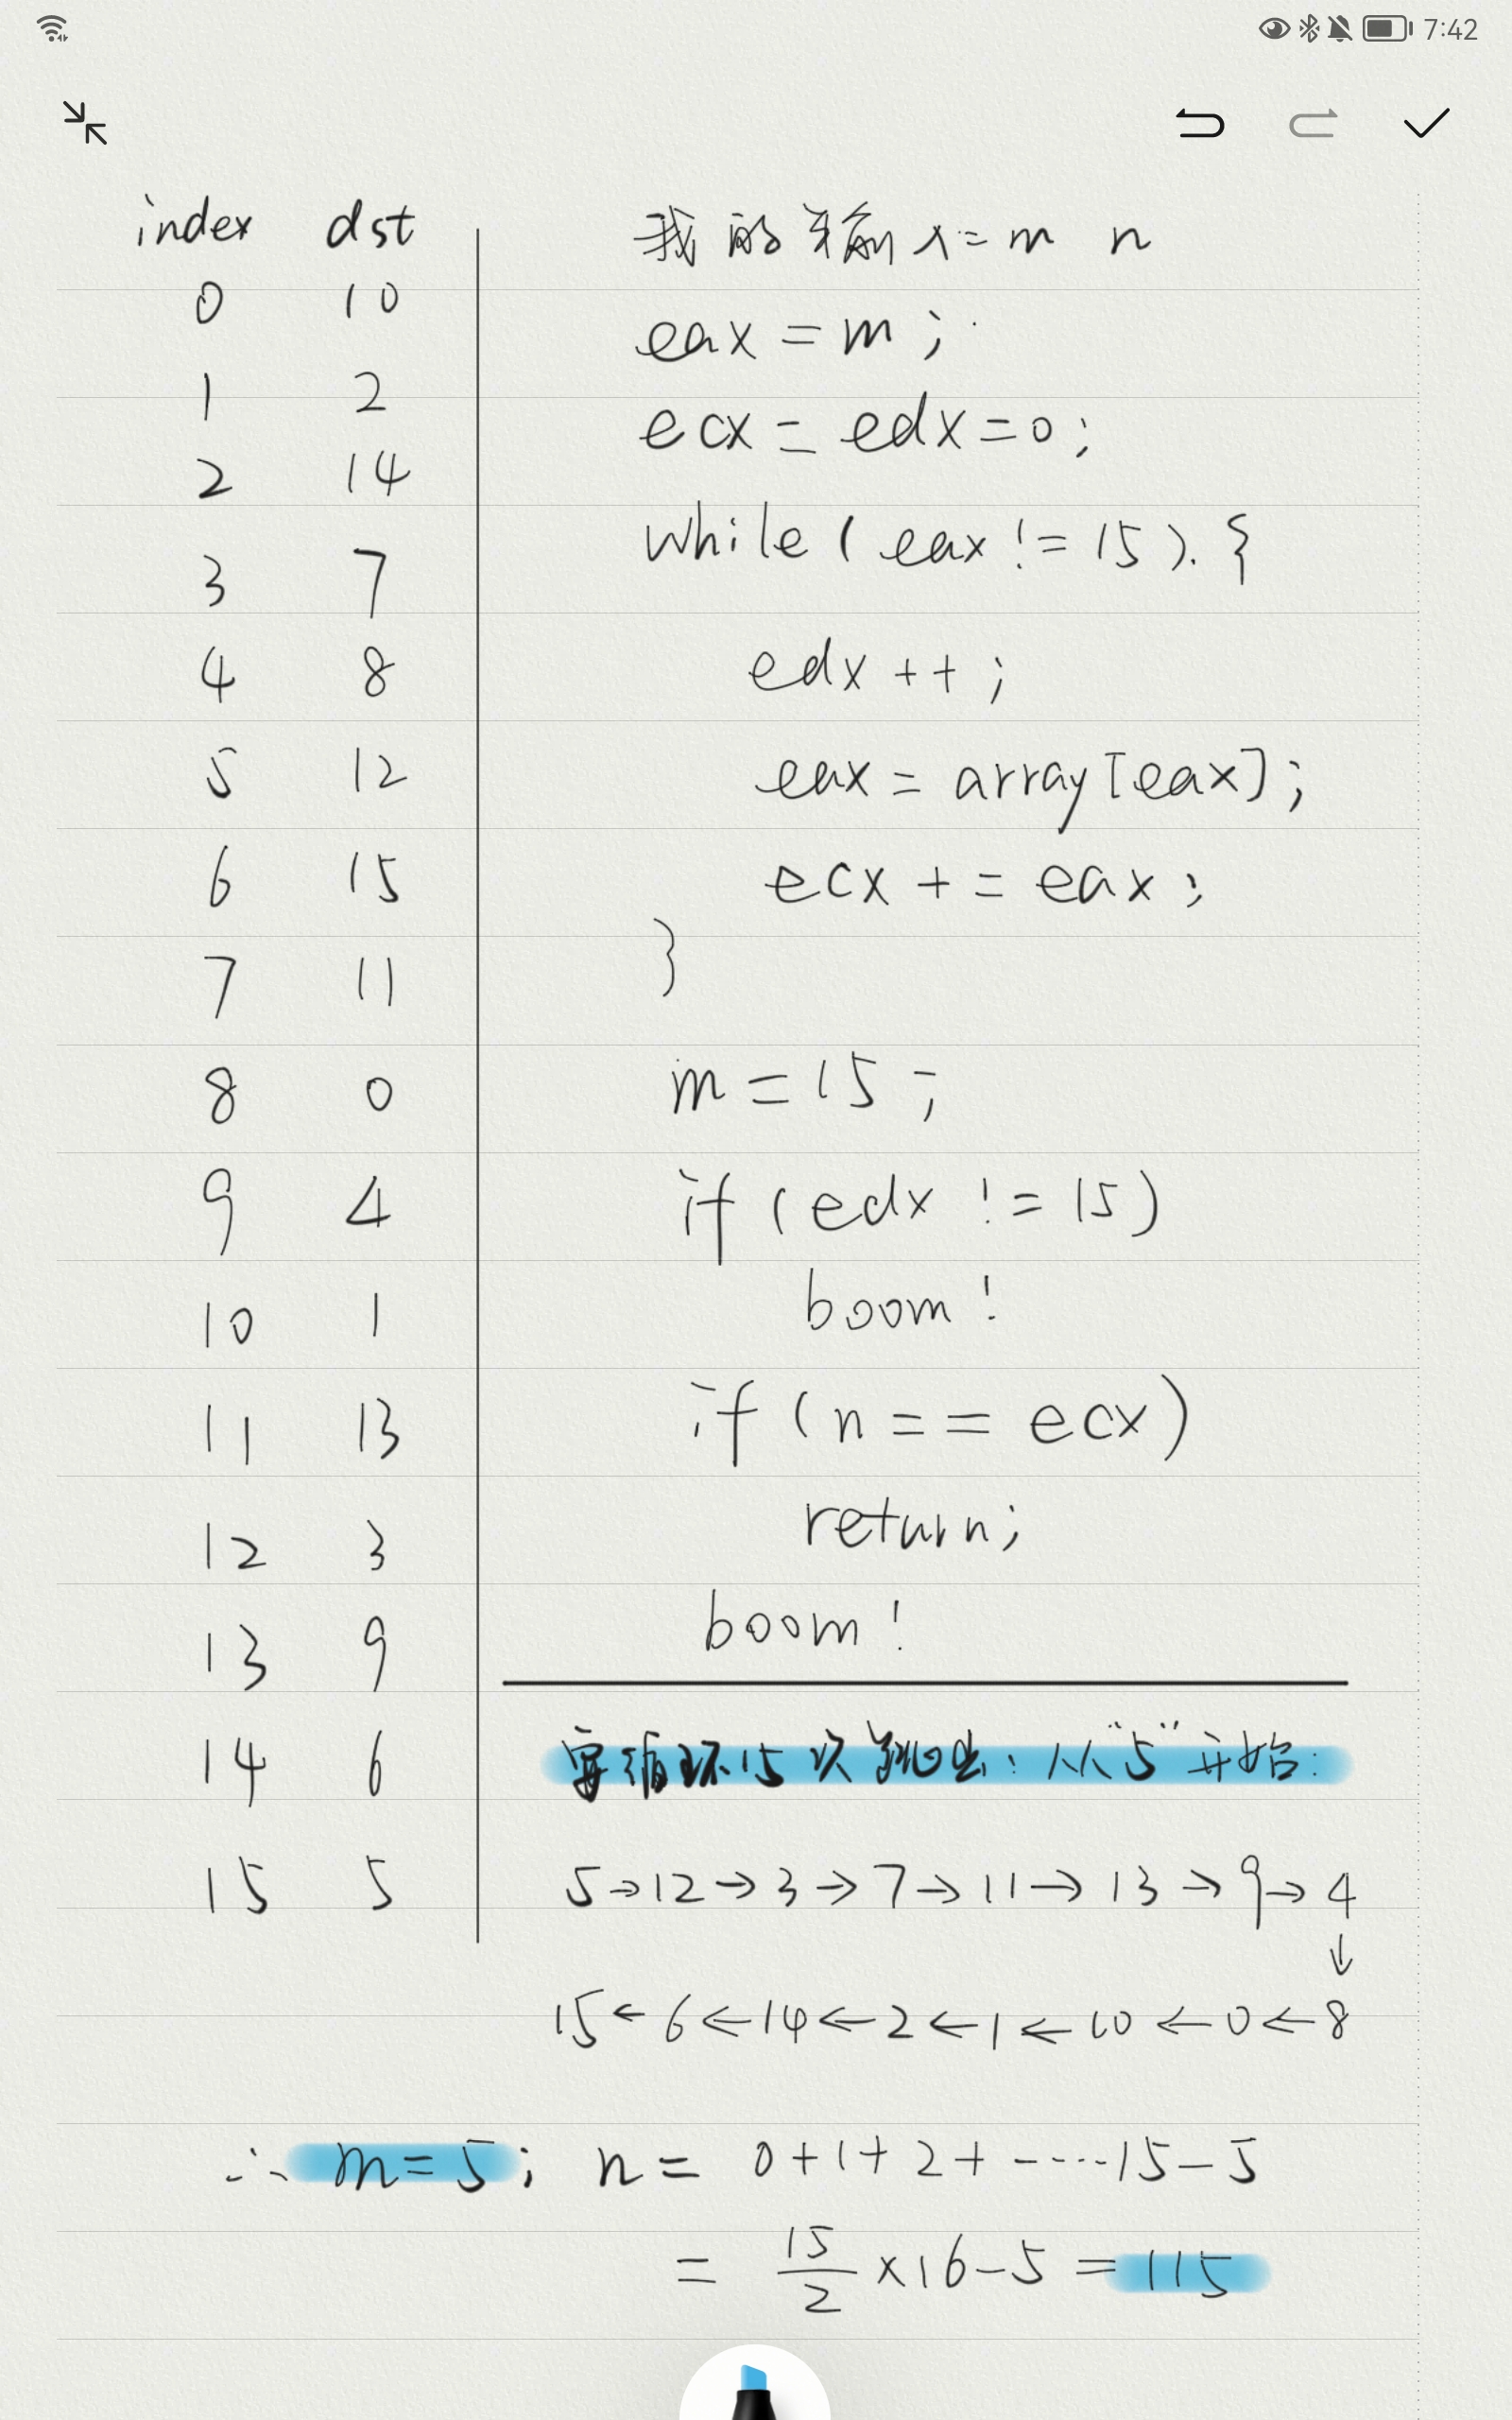 7:42
index dst
0 10
1 2
2 14
3 7
4 8
5 12
6 15
7 11
8 0
9 4
10 1
11 13
12 3
13 9
14 6
15 5
我的输入=m n
eax = m;
ecx = edx = 0;
while (eax != 15). {
edx ++;
eax = array[eax];
ecx += eax;
}
m = 15;
if (edx != 15)
boom!
if (n == ecx)
return;
boom!
要循环15次跳出:从"5"开始:
5→12→3→7→11→13→9→4
↓
15←6←14←2←1←10←0←8
∴ m=5; n= 0+1+2+-----15-5
= 15/2 ×16-5 =115